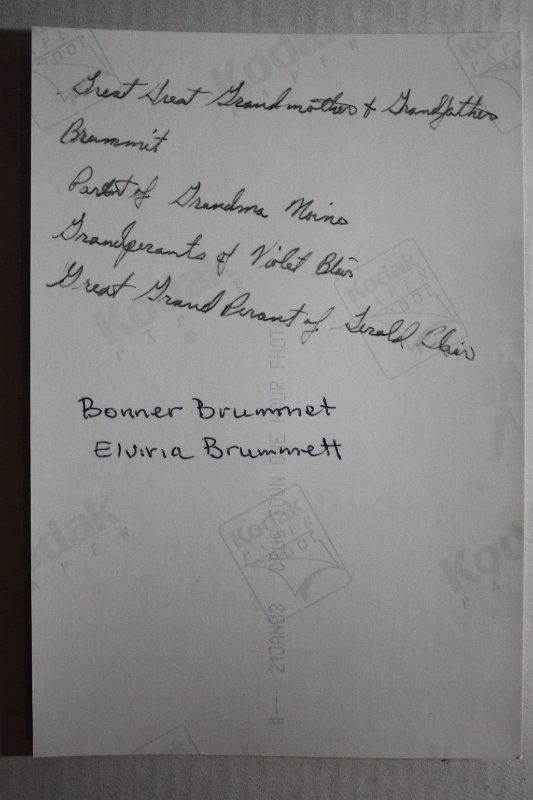 Great Great Grandmother & Grandfather
Brummit
Parent of Grandma Moine
Grandperants of Violet Blair
Great Grand Perant of Jerald Blair
Bonner Brummet
Elviria Brummett
Kodak
PAPER
Kodak
PAPER
Kodak
PAPER
Kodak
PAPER
Kodak
PAPER
21JAN03 DRUGTOWN ONE HOUR PHOTO